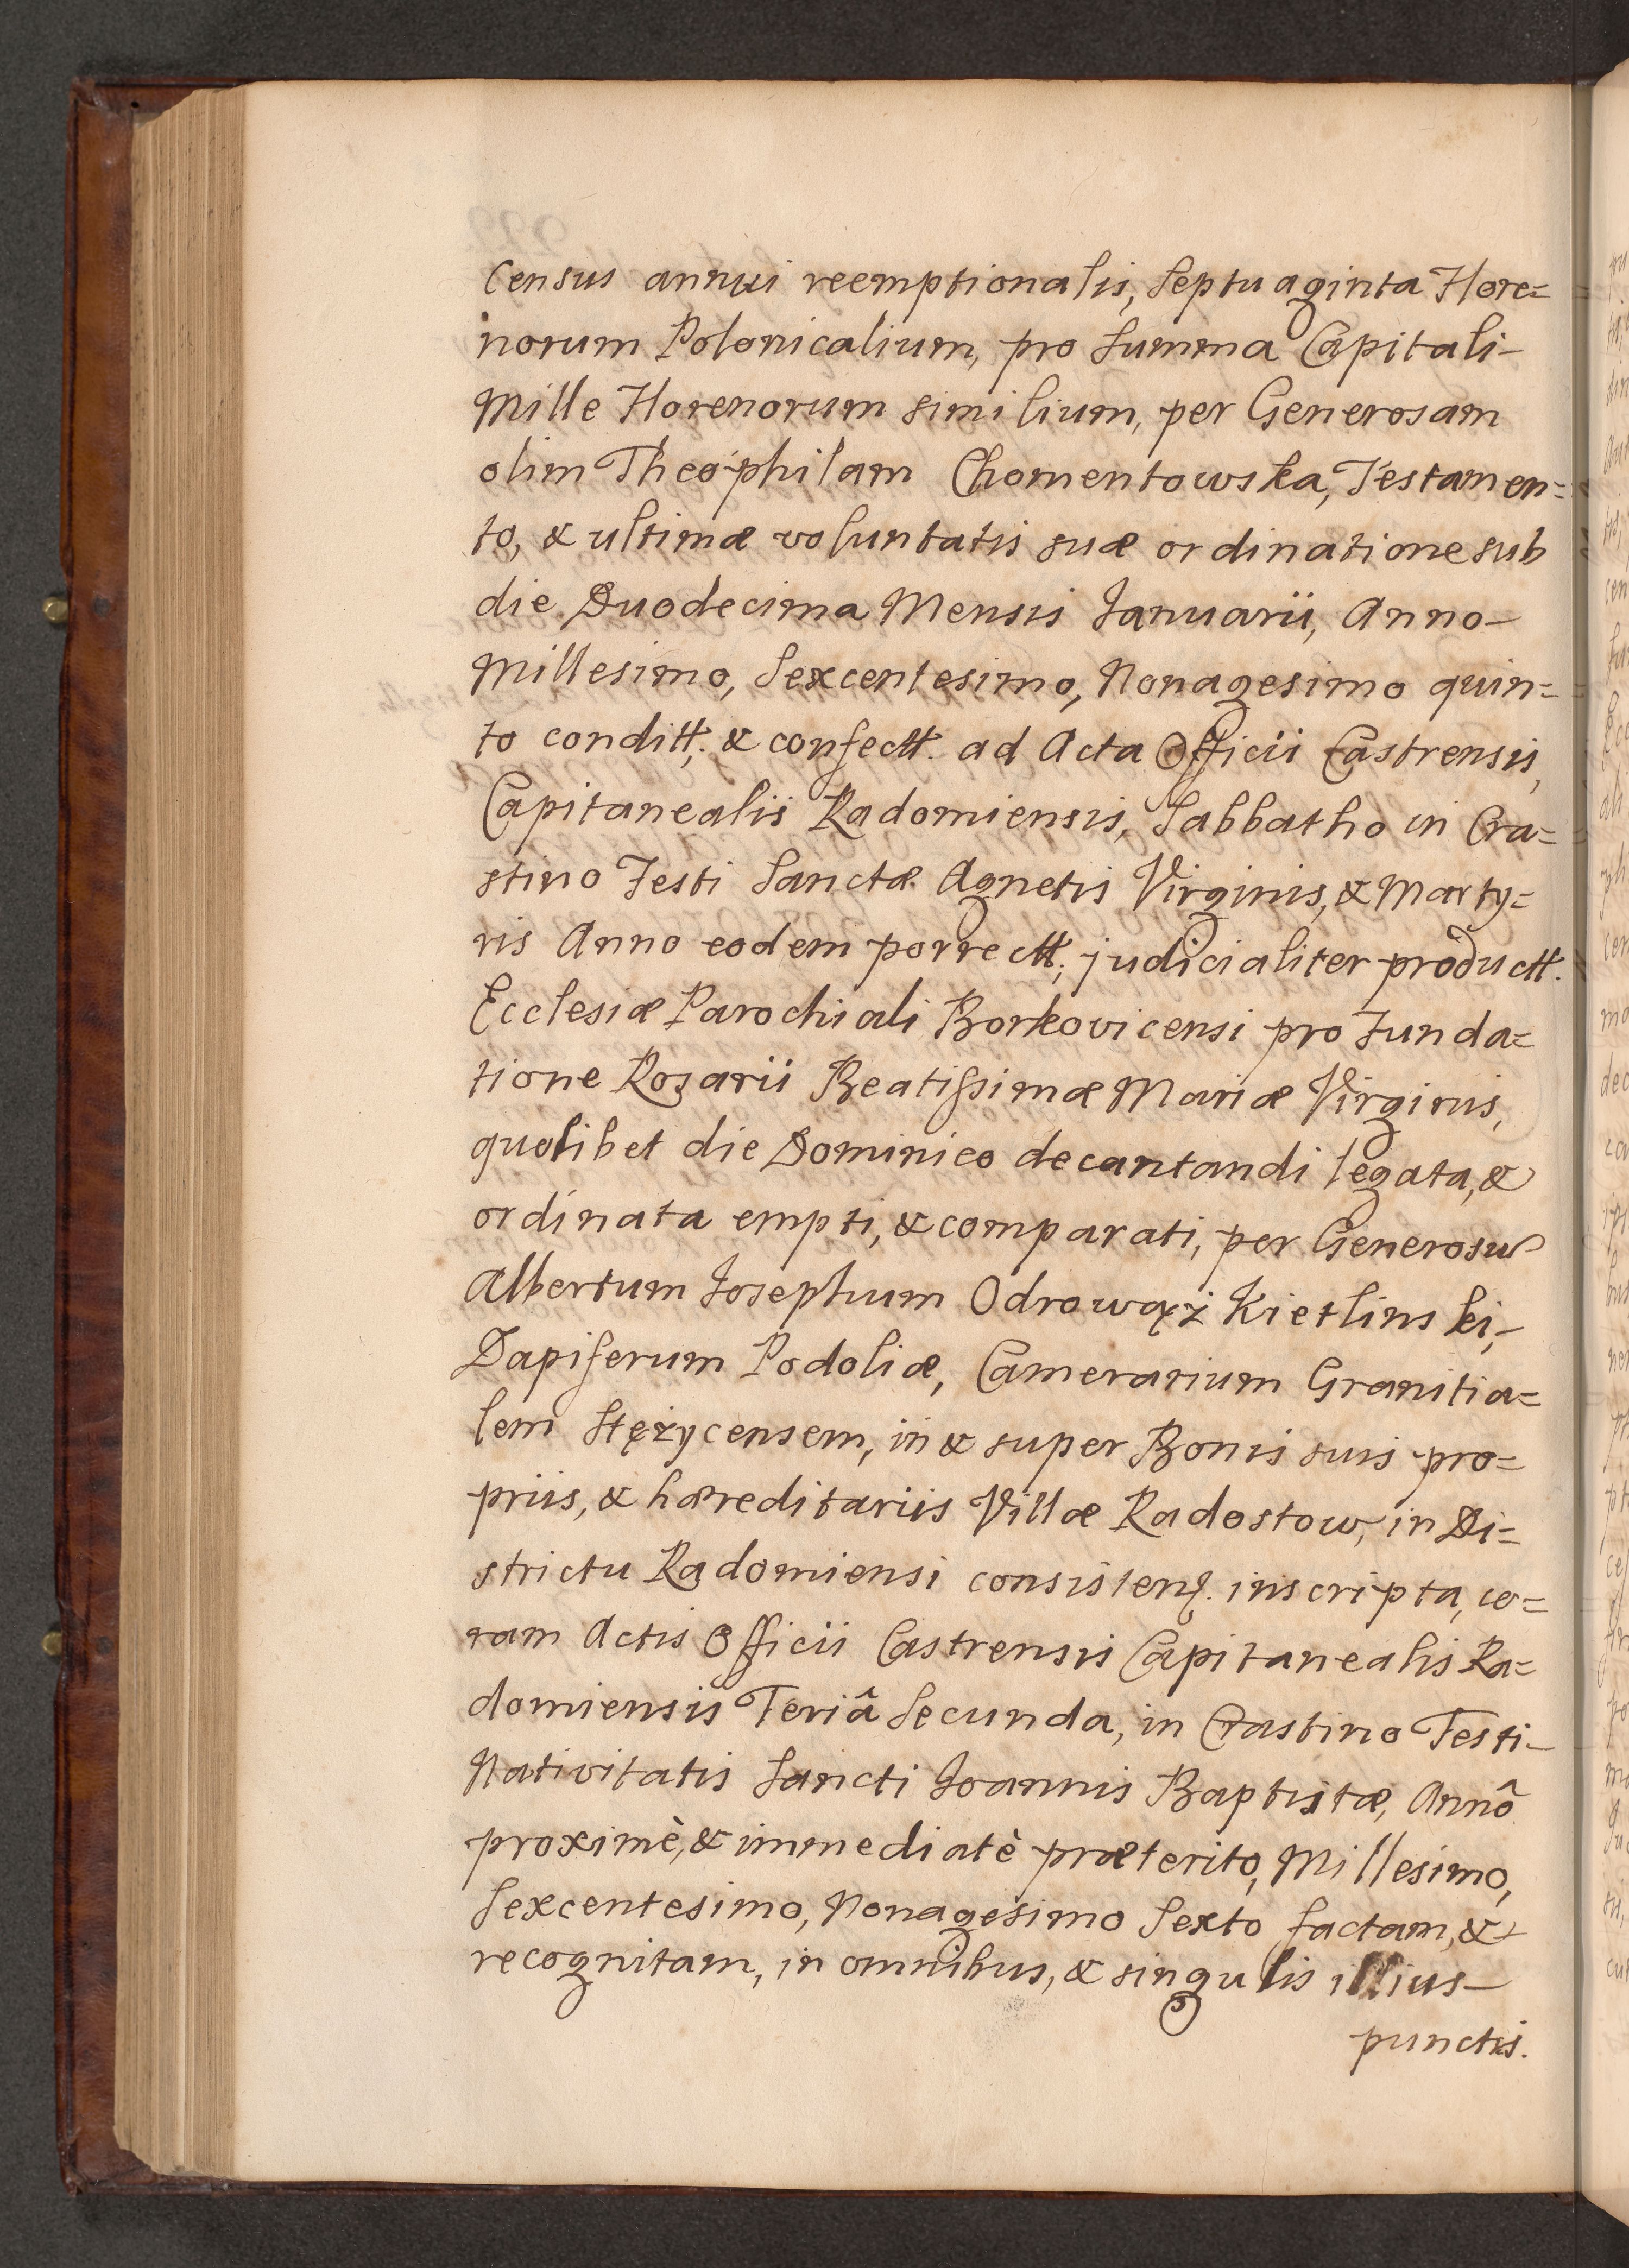 Census annui reemptionalis, Septuaginta Flore=
norum Polonicalium, pro Summa Capitali-
Mille Florenorum similium, per Generosam
olim Theophilam Chomentowska, Testamen=
to, & ultimæ voluntatis suæ ordinatione sub
die Duodecima Mensis Januarii, Anno-
Millesimo, Sexcentesimo, Nonagesimo quin=
to conditt; & confectt. ad Acta Officii Castrensis,
Capitanealis Radomiensis, Sabbatho in Cra=
stino Festi Sanctæ Agnetis Virginis, & Marty=
ris Anno eodem porrectt; judicialiter productt.
Ecclesiæ Parochiali Borkovicensi pro Funda=
tione Rosarii Beatissimæ Mariæ Virginis,
quolibet die Dominico decantandi legata, &
ordinata empti, & comparati, per Generosu
Albertum Josephum Odrowąż Kietlinski,-
Dapiferum Podoliæ, Camerarium Granitia=
lem Stężycensem, in & super Bonis suis pro=
priis, & hæreditariis Villæ Radostow, in Di=
strictu Radomiensi consisten. inscripta, co=
ram Actis Officii Castrensis Capitanealis Ra=
domiensis Feriâ Secunda, in Crastino Festi-
Nativitatis Sancti Joannis Baptistæ, Annô
proximè, & immediatè præterito, Millesimo,
Sexcentesimo, Nonagesimo Sexto factam, &
recognitam, in omnibus, & singulis illius-
punctis.